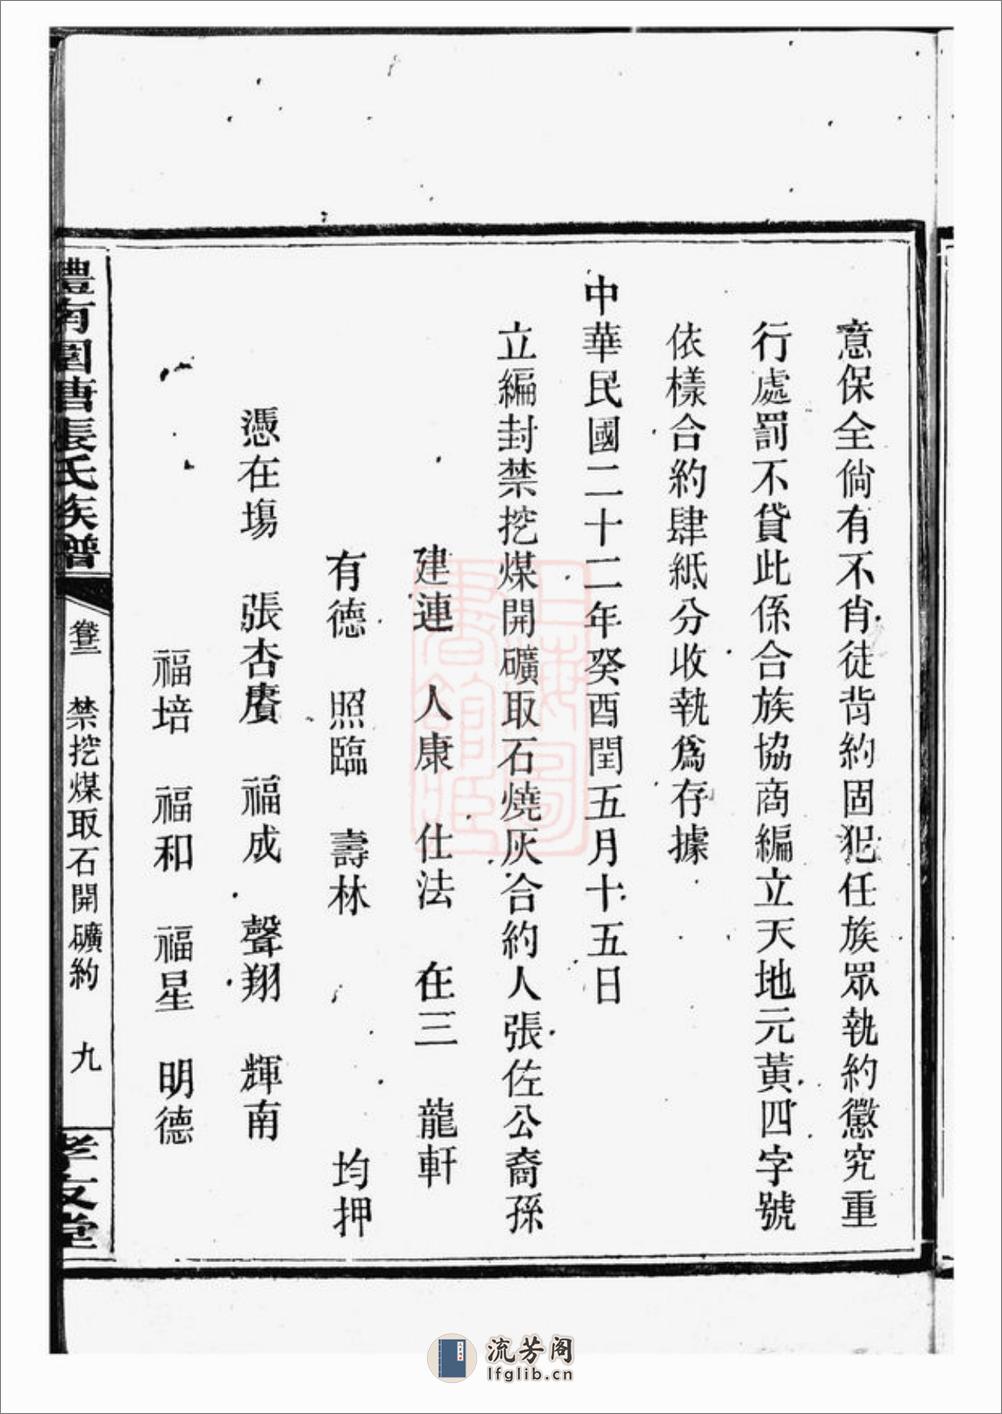 意保全倘有不肖徒背約固犯任族眾執約懲究重
行處罰不貸此係合族協商編立天地元黃四字號
依樣合約肆紙分收執爲存據
中華民國二十二年癸酉閏五月十五日
立編封禁挖煤開礦取石燒灰合約人張佐公裔孫
建連 人康 仕法 在三 龍軒
有德 照臨 壽林 均押
憑在塲 張杏賡 福成 聲翔 輝南
福培 福和 福星 明德
澧南圍唐張氏族譜
卷三 禁挖煤取石開礦約 九
孝友堂
上海圖書館藏
流芳阁
lfglib.cn